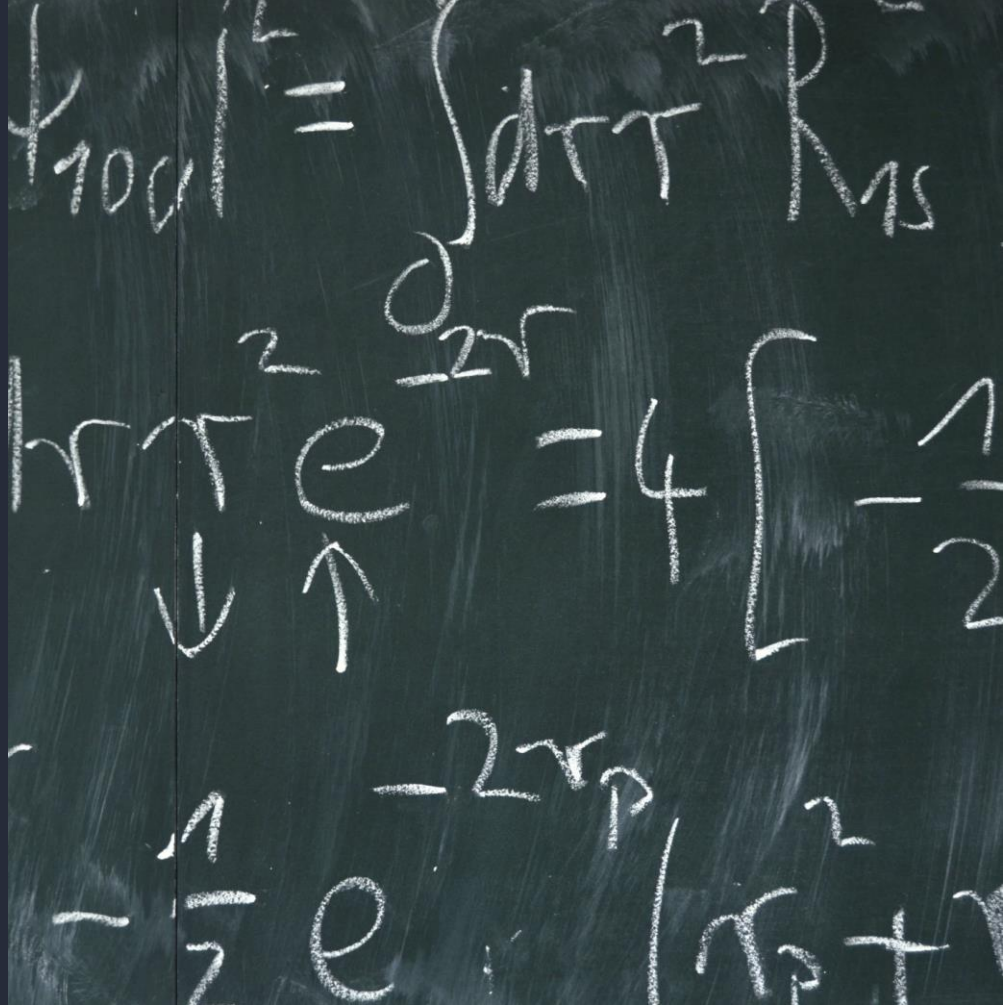 ψ₁₀₀|² = ∫₀ dr r² R₁ₛ²
dr r² e⁻²ʳ = 4 [ - 1/2
↓ ↑
- 1/2 e^(-2r_p) · (r_p² + r